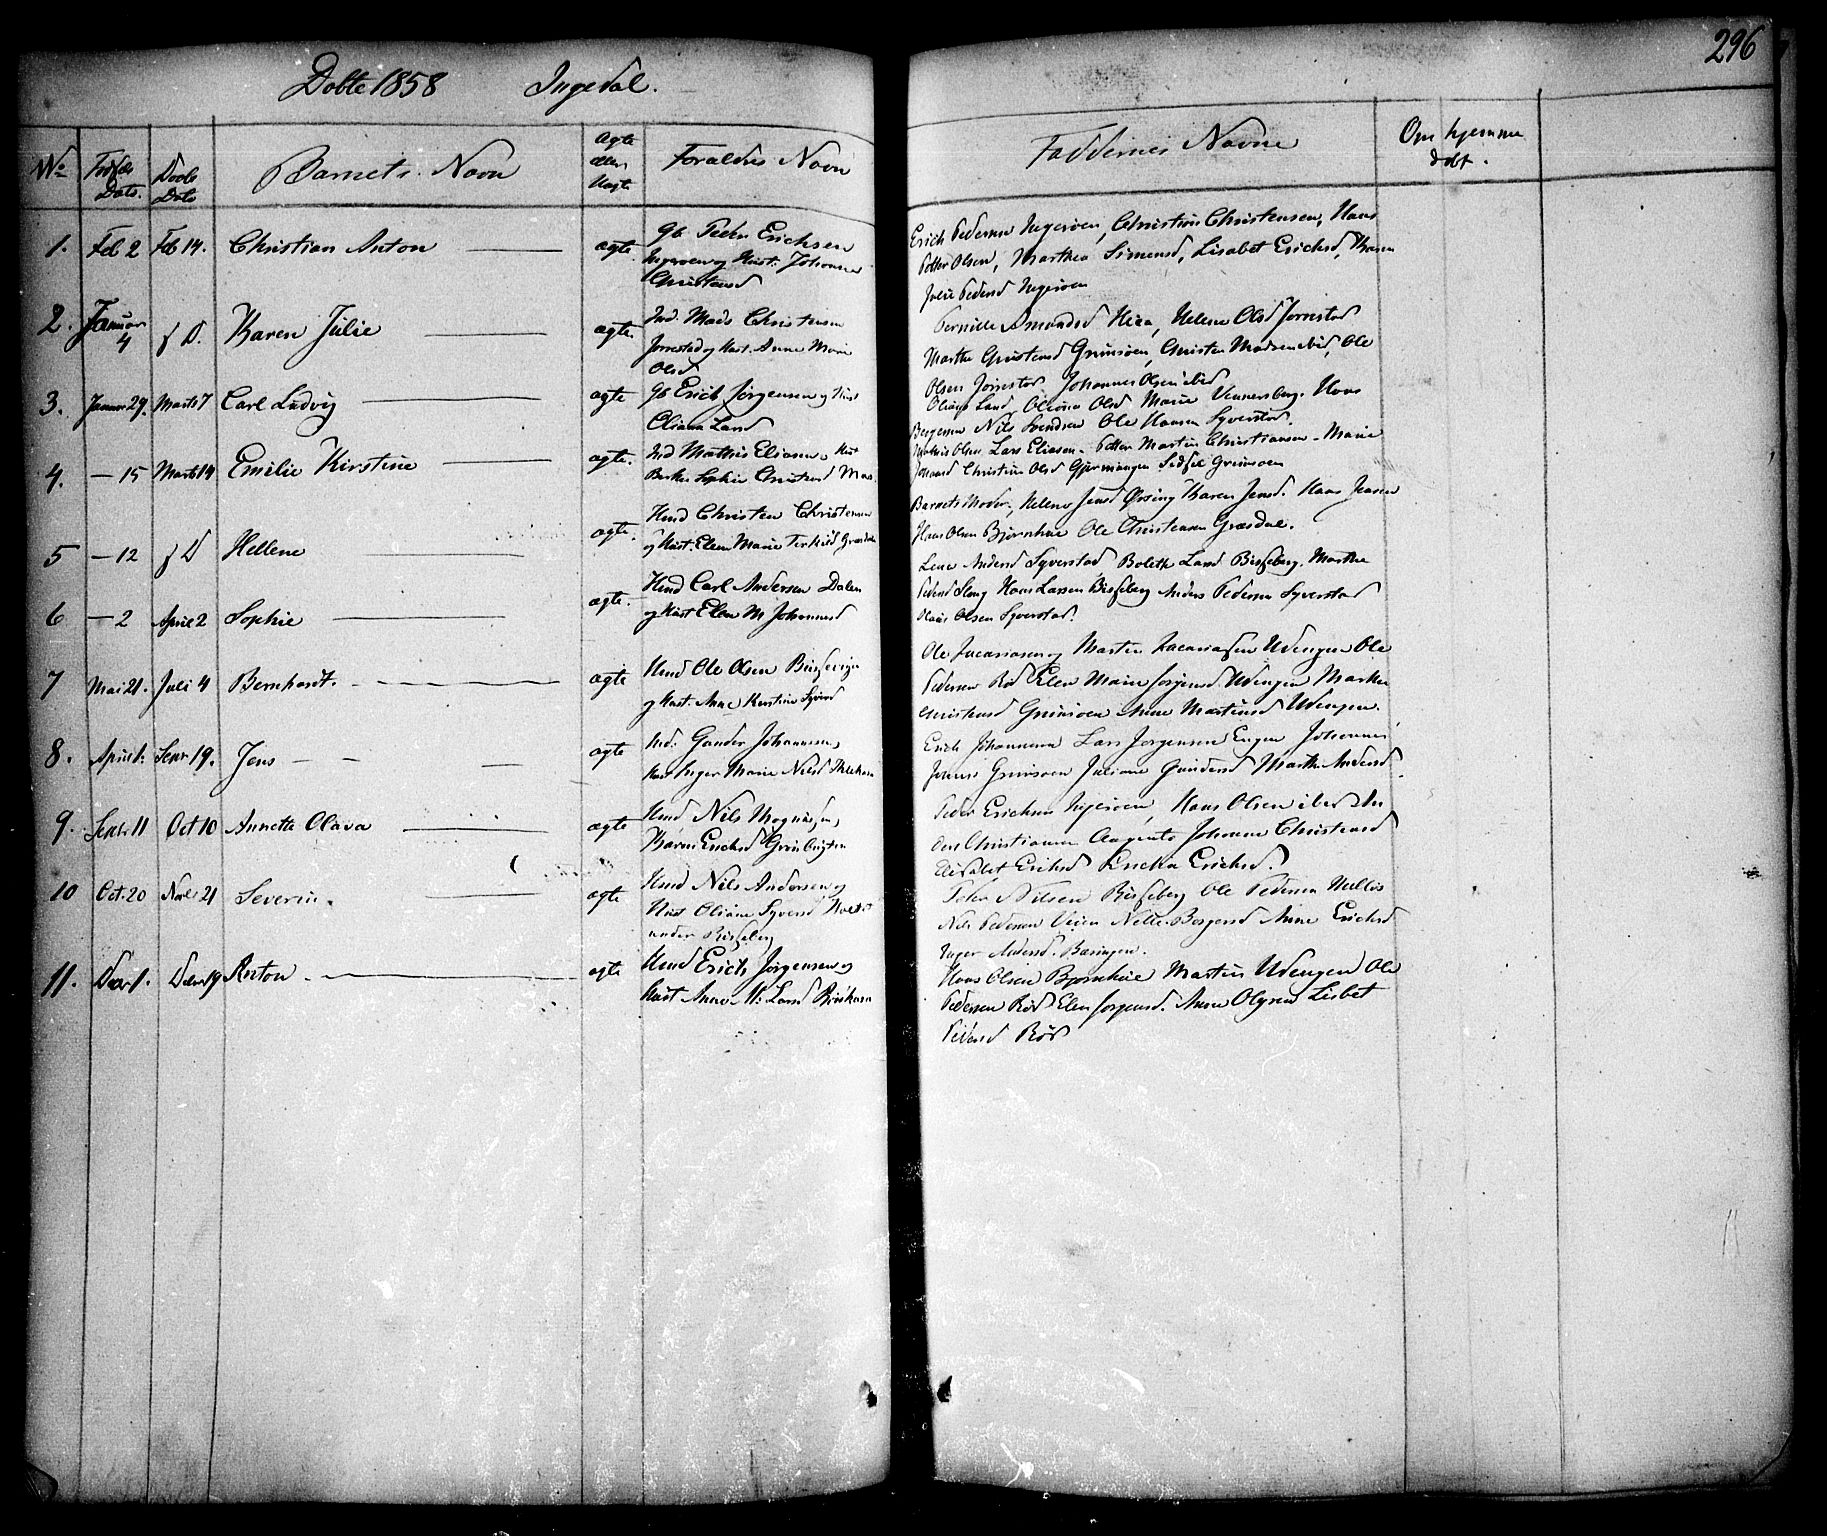 296
Døbte 1858 Ingedal.
No Fødsels Dato. Daabs Dato Barnets Navn Ægte eller Uægte Forældres Navn Faddernes Navne Om hjemme døbt.
1. Feb 2 Feb 14. Christian Anton ægte.
Gb. Peder Erichsen
Ingerøen og Kust. Johanne
Christensd
Erich Pedersen Ingerøen, Christian Christensen, Hans
Petter Olsen, Marthea Simensd, Lisabet Erichsd, Karen
Julie Pedersd Ingerøen
2. Januar 4 s D. Karen Julie ægte.
Ind. Mads Christensen
Jorrestad og Kust. Anne Marie
Olsd
Pernille Amundsd, Helene Olsd Jorrestad
Marthe Christensd Grimsøen, Christen Madsen ibid, Ole
Olsen Jorrestad Johannes Olsen ibid
3. Januar 29. Marts 7 Carl Ludvig ægte
Gb Erich Jørgensen og Kust
Oliana Larsd
Oliana Larsd Oleana Olsd Marie Vennersberg. Hans
Børgersen Nils Svendsen Ole Hansen Syverstad.
4. — 15 Marts 14 Emilie Kirstine ægte.
Ind Mathis Eliasen, Kust
Berthe Sophie Christensd
Mathis Olsen Lars Eliasen. Petter Martin Christiansen. Marie
Johannsd Christine Olsd Sidsel Grimsøen
5 — 12 s D Hellene ægte.
Hmd Christen Christensen
og Kust. Elen Marie Græsdal
Barnets Moder, Helene Jensd Karen Jensd. Hans Jensen
Hans Olsen Bjørnhue Ole Christensen Græsdal.
6 — 2 April 2 Sophie ægte.
Hmd Carl Andersen Dalen
og Kust Elen M Johannesd
Lene Andersd Syverstad Boleth Larsd Bisseberg. Marthe
Pedersd Hans Larsen Bisseberg Anders Pedersen Syverstad
Olsen Syverstad.
7 Mai 21. Juli 4 Bernhardt. ægte
Hmd Ole Olsen
og Kust. Anne Kirstine Syversd
Ole Zacariasen og Martin Zacariassen Udengen Ole
Pedersen Rød Elen Marie Jørgensd Udengen Marthe
Christensd Grimsøen Anne Martinsd Udengen.
8. April 1. Septr 19. Jens ægte
Ind. Gunder Johannesen,
Kust Inger Marie Nilsd
Erich Johannesen Lars Jørgensen Engen Johannes
Grimsøen Juliane Gundersd Marthe Andersd.
9. Septr 11 Oct 10 Annette Olava ægte
Hmd Nils Magnussen,
Karen Erichsd
Peder Erichsen Ingerøen, Hans Olsen ibid An
ders Christiansen Johanne Christensd
Elisabet Erichsd Ericka Erichsd.
10 Oct. 20 Novb 21 Severin. ægte
Hmd Nils Andersen og
Kust Oliane Syversd
under Bisseberg
Peder Nilsen Bisseberg Ole Pedersen
Nils Pedersen Nelle Børgersd Anne Erichsd
Inger Andersd.
11. Decbr 1. Decbr 19 Anton ægte
Hmd Erich Jørgensen og
Kust Anne M. Larsd
Hans Olsen Bjørnhue Martin Udengen Ole
Pedersen Rød Elen Jørgensd. Anne Lisbet
Pedersd Rød